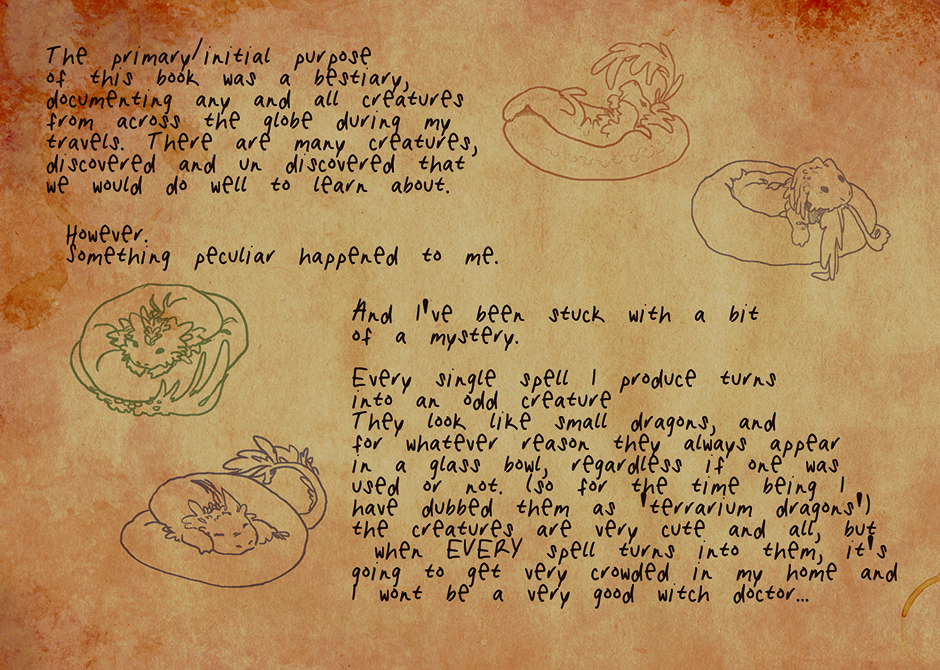 The primary/initial purpose
of this book was a bestiary,
documenting any and all creatures
from across the globe during my
travels. There are many creatures,
discovered and un discovered that
we would do well to learn about.
However.
Something peculiar happened to me.
And I've been stuck with a bit
of a mystery.
Every single spell I produce turns
into an odd creature
They look like small dragons, and
for whatever reason they always appear
in a glass bowl, regardless if one was
used or not. (so for the time being I
have dubbed them as 'terrarium dragons')
the creatures are very cute and all, but
when EVERY spell turns into them, it's
going to get very crowded in my home and
I wont be a very good witch doctor...